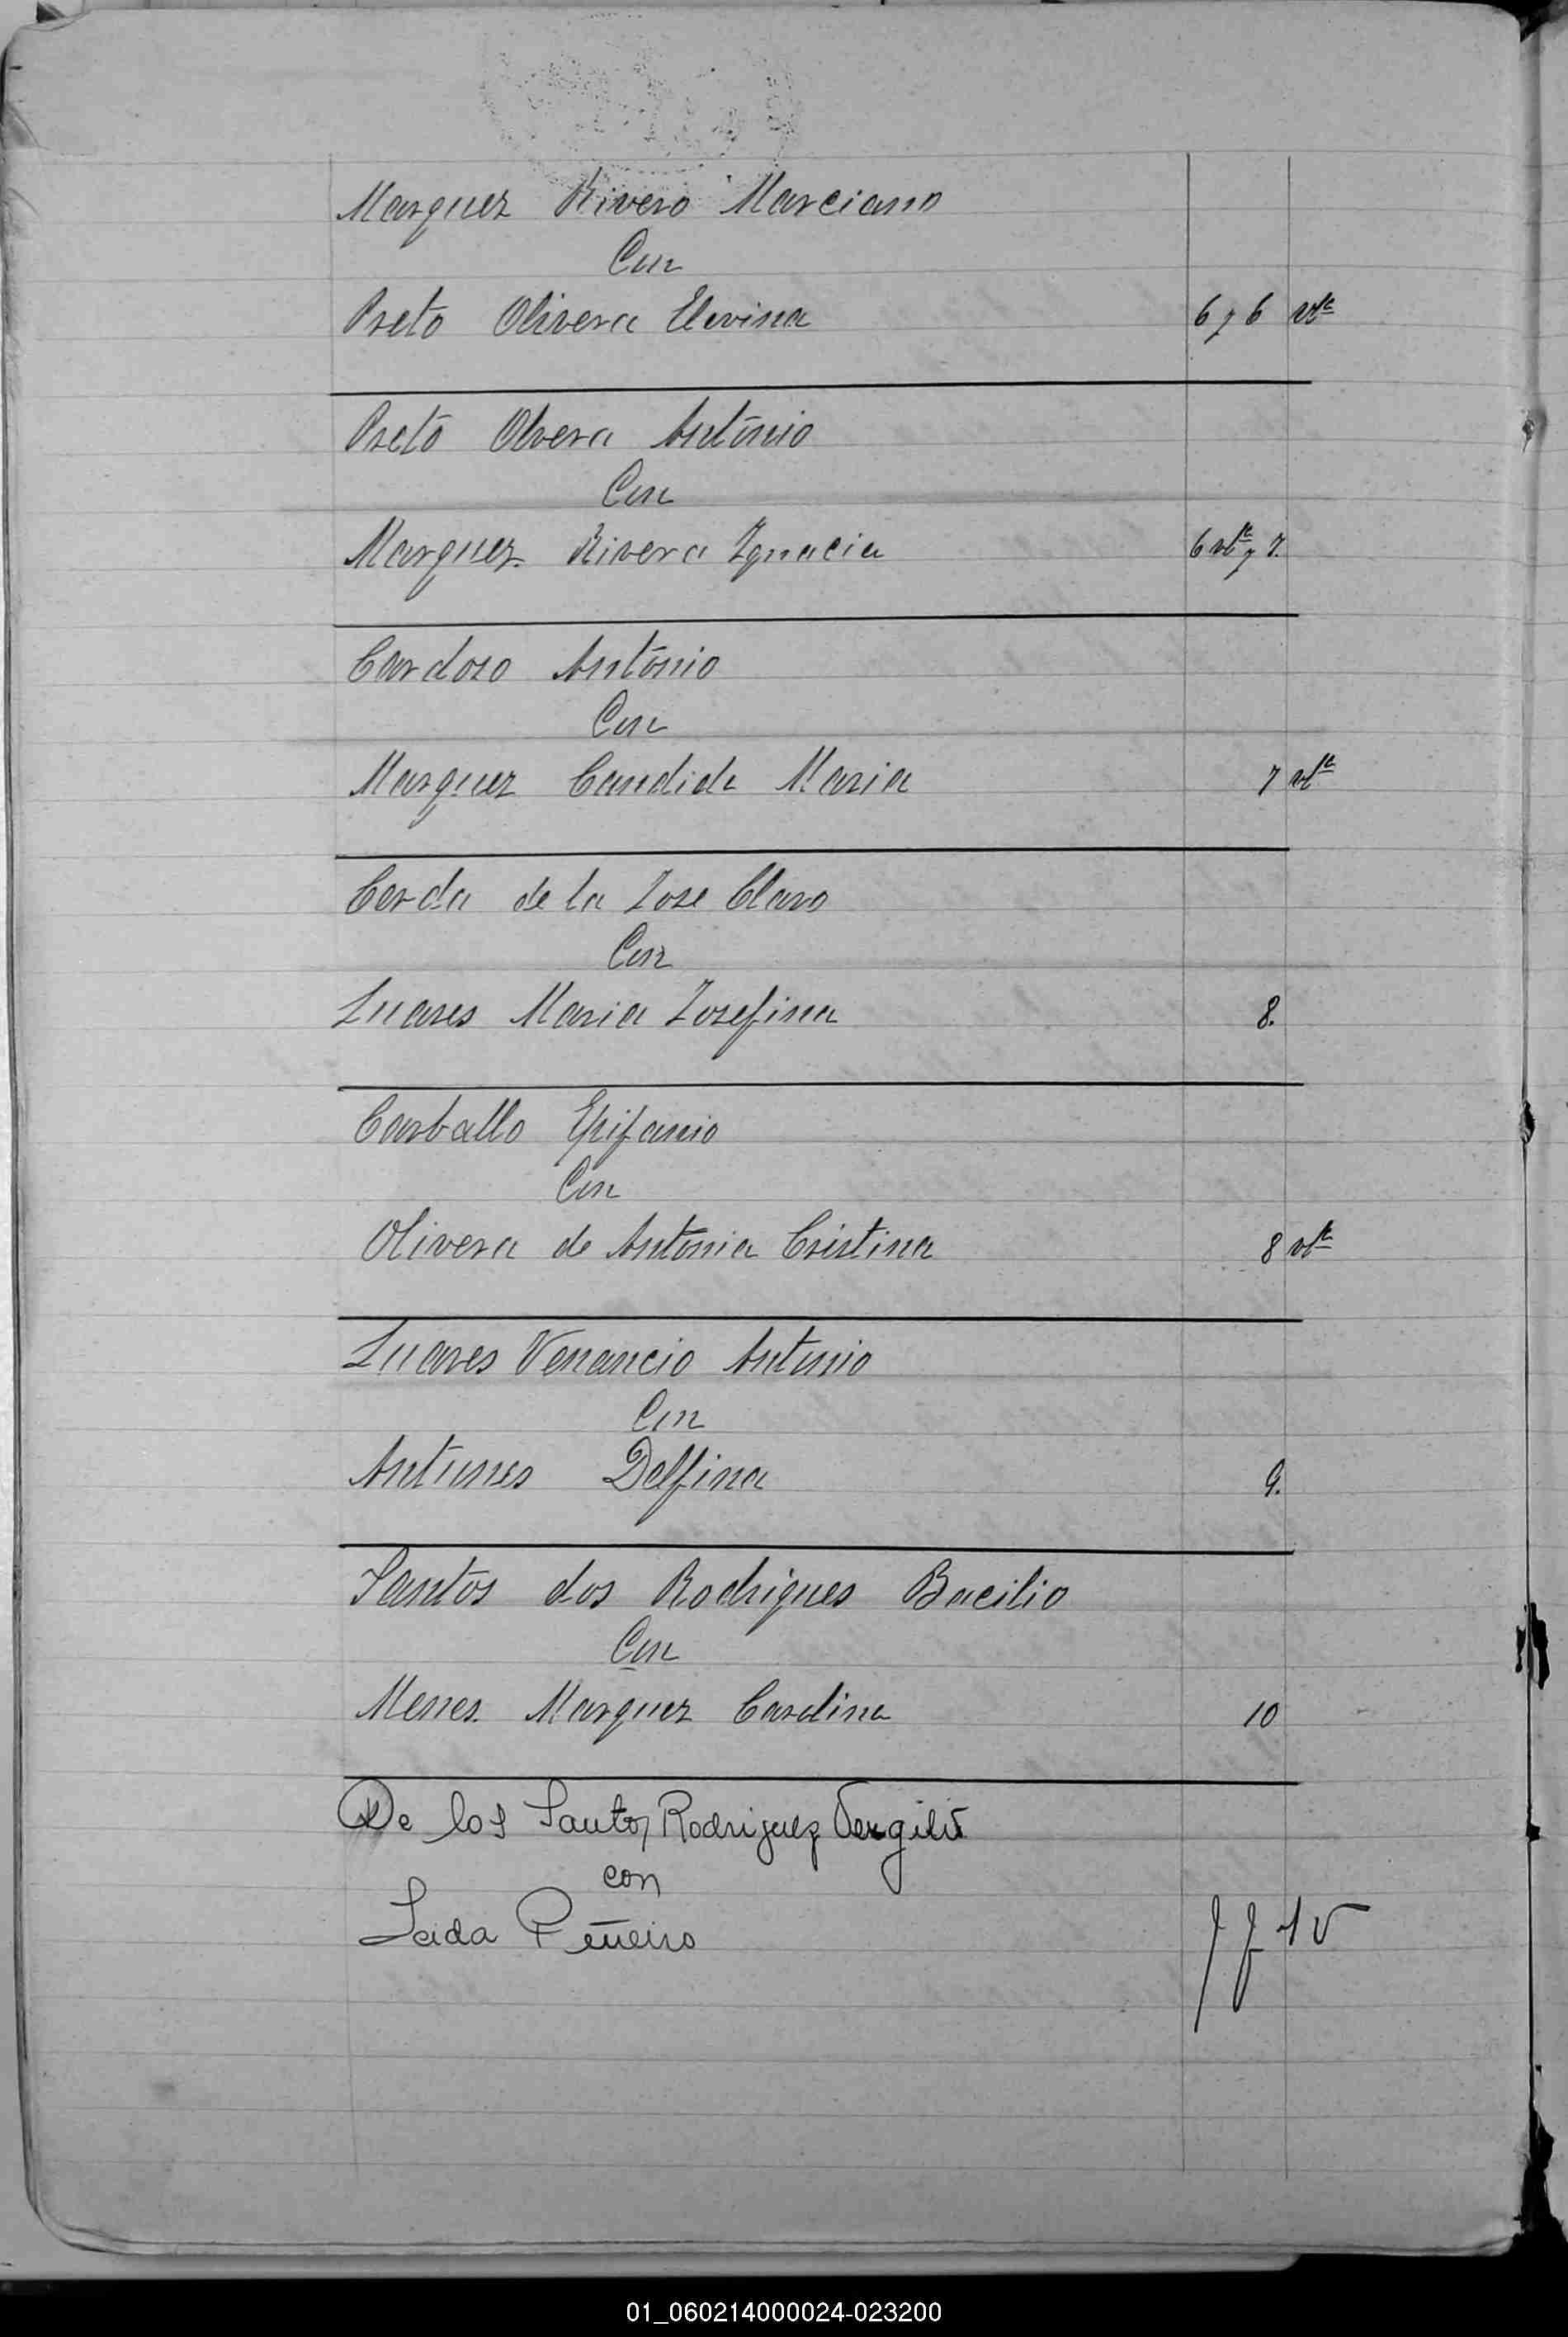 Marquez Rivero Marciano
Con
Preto Olivera Elevina 6 y 6 vta
Preto Olvera António
Con
Marquez Rivera Ignacia 6 vta y 7.
Cardozo António
Con
Marquez Candida Maria 7 vta
Cerda de la Jose Claro
Con
Suares Maria Josefina 8.
Carballo Epifanio
Con
Olivera de Antonia Cristina 8 vta
Suares Venancio Antonio
Con
Antunes Delfina 9.
Santos dos Rodrigues Bacilio
Con
Menes Marquez Cardina 10
De los Santos Rodriguez Vergilio
con
Leida Piñeiro
01_060214000024-023200